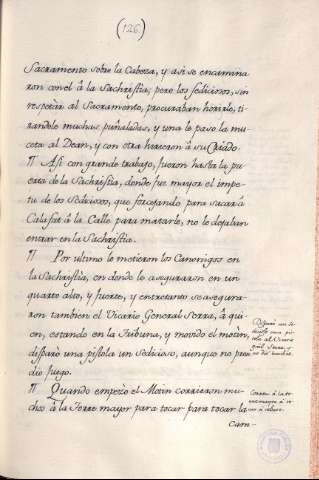 (126)
Sacramento sobre la Cabeza, y asi se encamina-
ron con el â la Sachristia; pero los sediciosos, sin
respetar al Sacramento, procuraban herirle, ti-
randole muchas puñaladas, y una le pasò la mu-
ceta al Dean, y con otra hirieron â su Criado.
¶ Asi con grande trabajo, fueron hasta la pu-
erta de la Sachristia, donde fue mayor el impe-
tu de los sediciosos, que forcejando para sacar â
Calafat â la Calle para matarle, no le dejaban
entrar en la Sachristia.
¶ Por ultimo le metieron los Canonigos en
la Sachristia, en donde lo aseguraron en un
quarto alto, y fuerte, y entretanto se asegura-
ron tambien el Vicario General Serra, â qui-
en, estando en la Tribuna, y movido el motin,
disparò una pistola un sedicioso, aunque no pren-
dio fuego.
Disparò un se-
dicioso una pis-
tola al Vicario
Gral Serra, y
no dio lumbre.
¶ Quando empezò el Motin corrieron mu-
chos â la Torre mayor para tocar para tocar la
Corren â la to-
rre mayor â to-
car â rebato.
Cam-